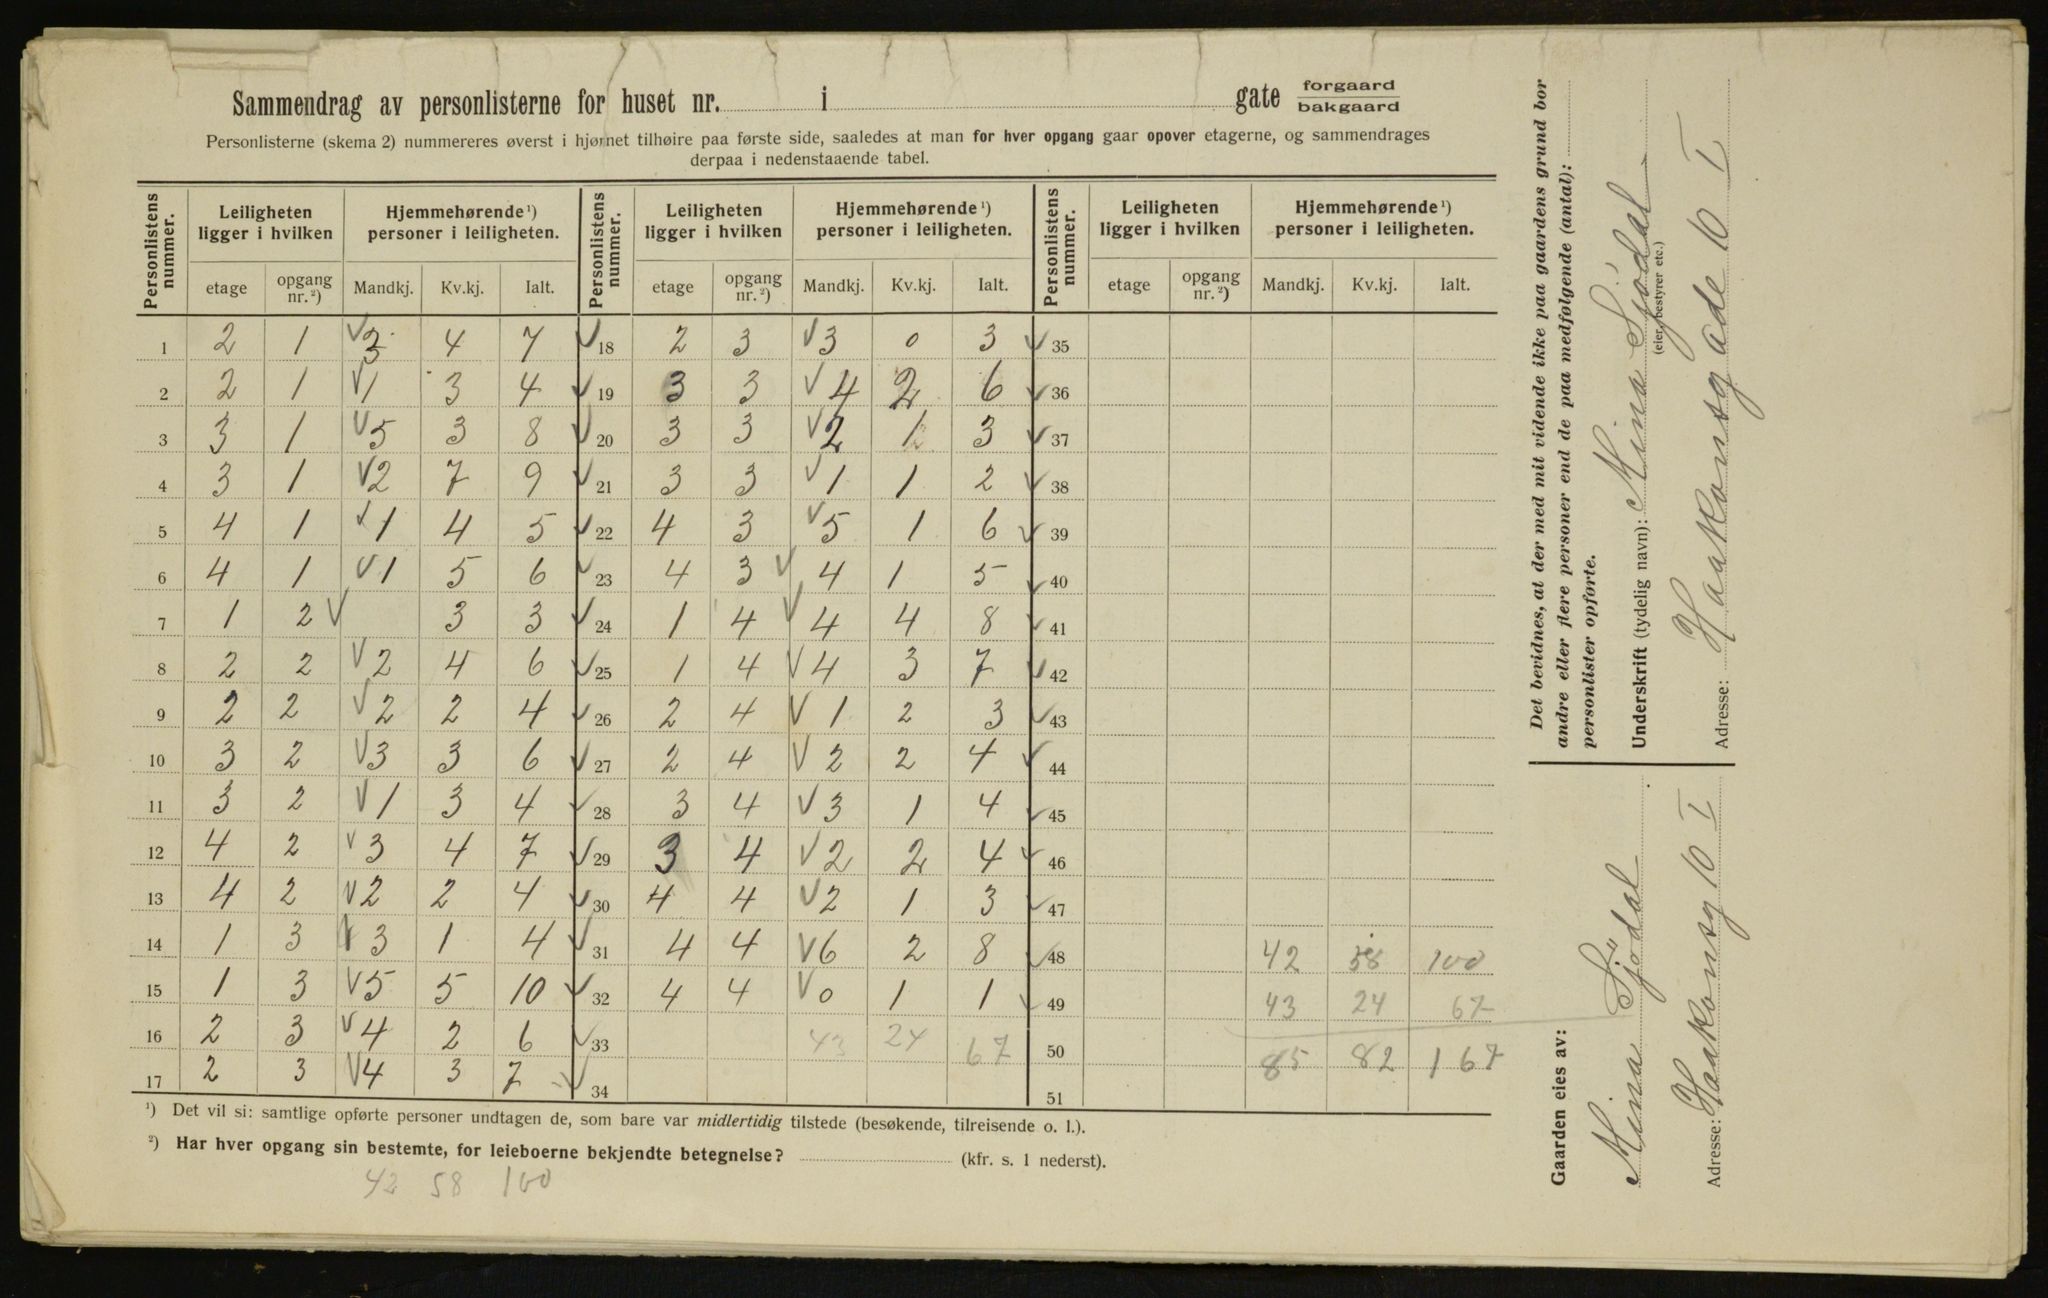 Sammendrag av personlisterne for huset nr. i gate forgaard bakgaard
Personlisterne (skema 2) nummereres øverst i hjørnet tilhøire paa første side, saaledes at man for hver opgang gaar opover etagerne, og sammendrages
derpaa i nedenstaaende tabel.
Personlistens nummer. Leiligheten ligger i hvilken Hjemmehørende ¹) personer i leiligheten. Personlistens nummer. Leiligheten ligger i hvilken Hjemmehørende ¹) personer i leiligheten. Personlistens nummer. Leiligheten ligger i hvilken Hjemmehørende ¹) personer i leiligheten.
etage opgang nr. ²) Mandkj. Kv.kj. Ialt. etage opgang nr. ²) Mandkj. Kv.kj. Ialt. etage opgang nr. ²) Mandkj. Kv.kj. Ialt.
1 2 1 3 4 7 18 2 3 3 0 3 35
2 2 1 1 3 4 19 3 3 4 2 6 36
3 3 1 5 3 8 20 3 3 2 1 3 37
4 3 1 2 7 9 21 3 3 1 1 2 38
5 4 1 1 4 5 22 4 3 5 1 6 39
6 4 1 1 5 6 23 4 3 4 1 5 40
7 1 2 3 3 24 1 4 4 4 8 41
8 2 2 2 4 6 25 1 4 4 3 7 42
9 2 2 2 2 4 26 2 4 1 2 3 43
10 3 2 3 3 6 27 2 4 2 2 4 44
11 3 2 1 3 4 28 3 4 3 1 4 45
12 4 2 3 4 7 29 3 4 2 2 4 46
13 4 2 2 2 4 30 4 4 2 1 3 47
14 1 3 3 1 4 31 4 4 6 2 8 48 42 58 100
15 1 3 5 5 10 32 4 4 0 1 1 49 43 24 67
16 2 3 4 2 6 33 43 24 67 50 85 82 167
17 2 3 4 3 7 34 51
¹) Det vil si: samtlige opførte personer undtagen de, som bare var midlertidig tilstede (besøkende, tilreisende o. l.).
²) Har hver opgang sin bestemte, for leieboerne bekjendte betegnelse? (kfr. s. 1 nederst).
42 58 100
Det bevidnes, at der med mit vidende ikke paa gaardens grund bor
andre eller flere personer end de paa medfølgende (antal):
personlister opførte.
Underskrift (tydelig navn): Mina Sjödal
(eier, bestyrer etc.)
Adresse: Haakonsgade 10 I
Gaarden eies av:
Mina Sjödal
Adresse: Haakonsg 10 I